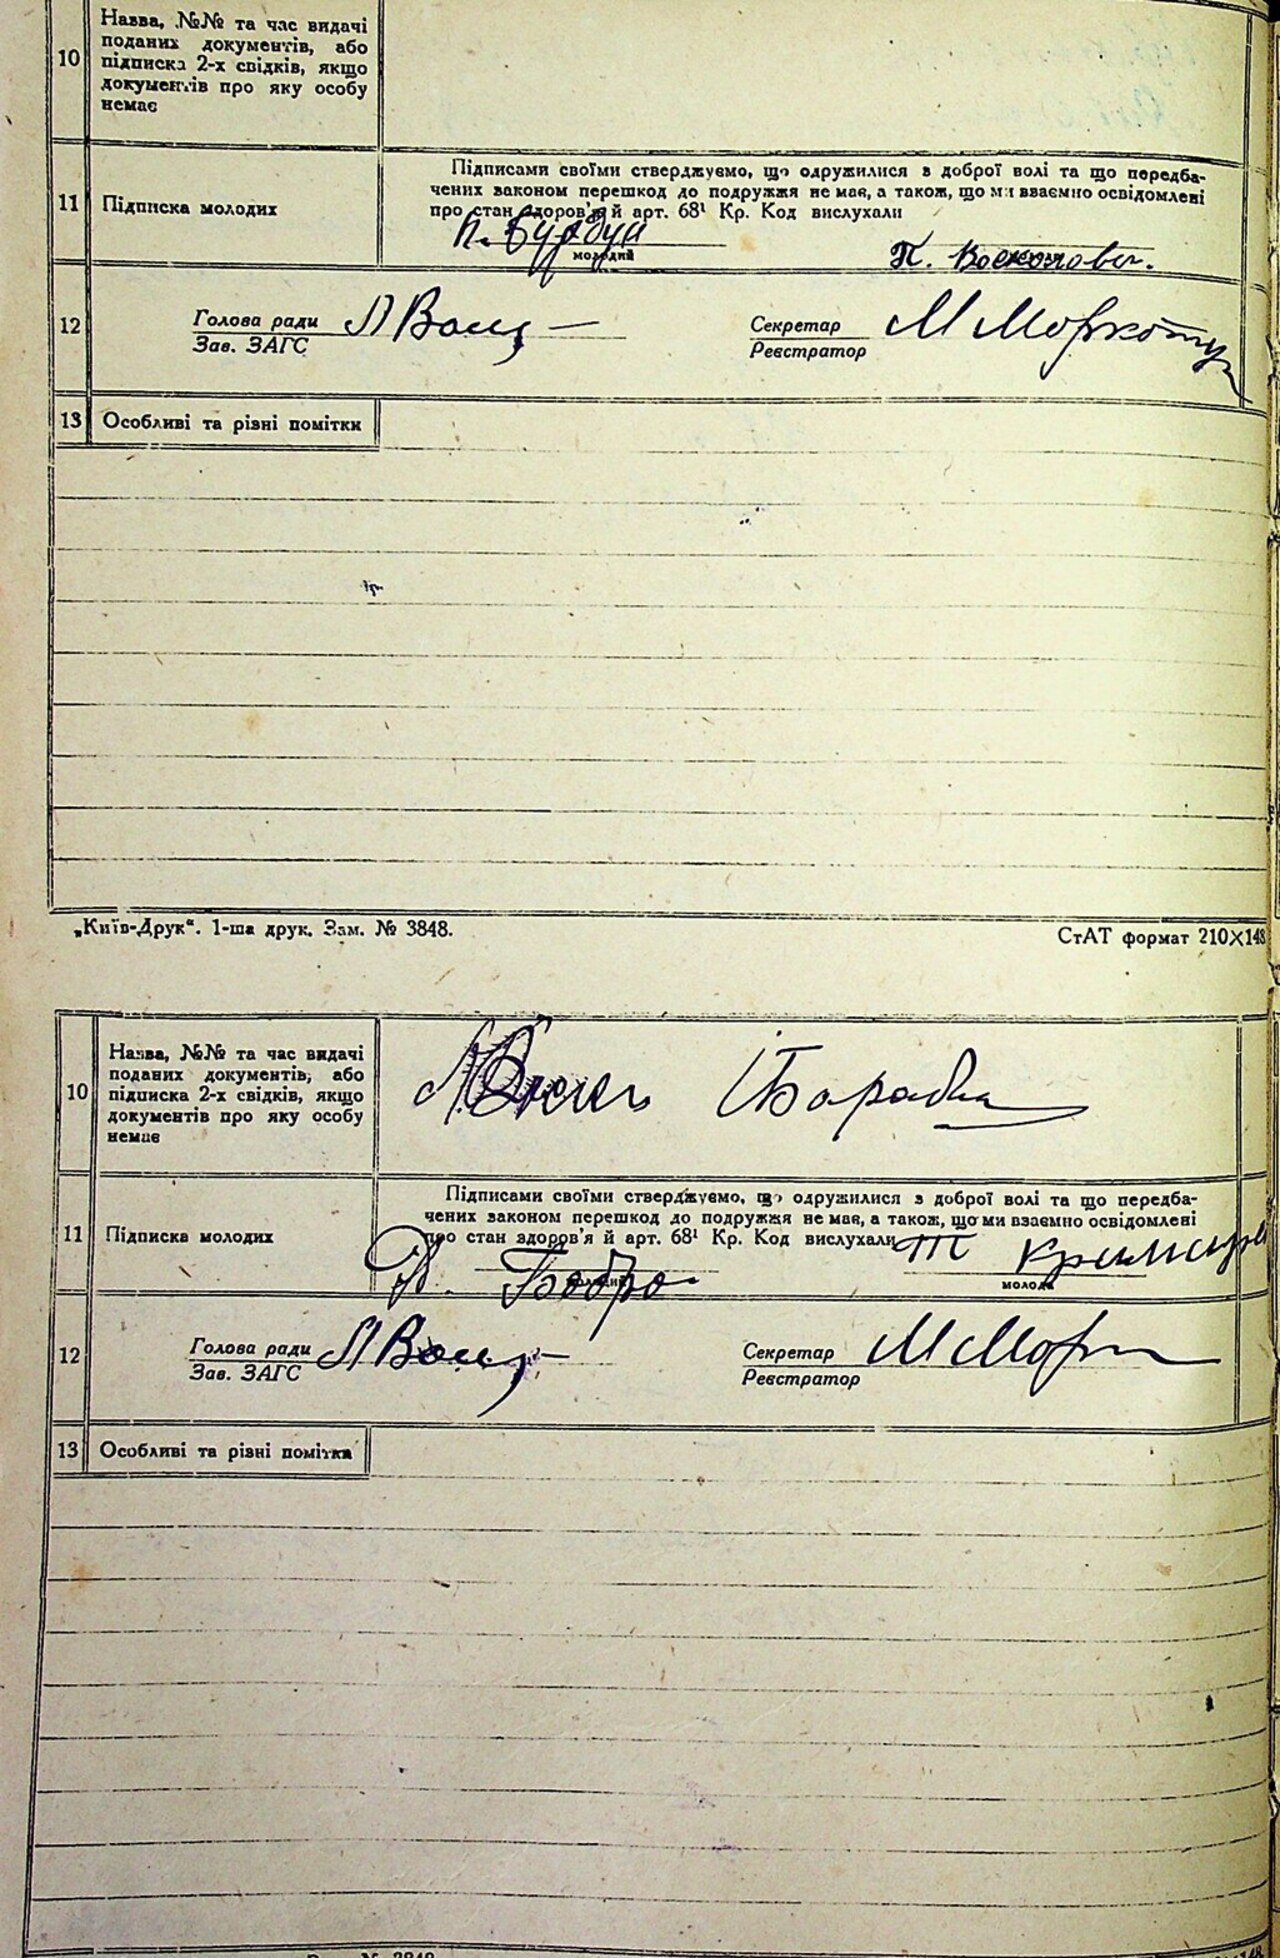 10
Назва, №№ та час видачі
поданих документів, або
підписка 2-х свідків, якщо
документів про яку особу
немає
11
Підписка молодих
Підписами своїми стверджуємо, що одружилися з доброї волі та що передба-
чених законом перешкод до подружжя не має, а також, що ми взаємно освідомлені
про стан здоров'я й арт. 68¹ Кр. Код вислухали
молодий
12
Голова ради
Зав. ЗАГС
Секретар
Реєстратор
13
Особливі та різні помітки
„Київ-Друк“. 1-ша друк. Зам. № 3848.
СтАТ формат 210×148
10
Назва, №№ та час видачі
поданих документів, або
підписка 2-х свідків, якщо
документів про яку особу
немає
11
Підписка молодих
Підписами своїми стверджуємо, що одружилися з доброї волі та що передба-
чених законом перешкод до подружжя не має, а також, що ми взаємно освідомлені
про стан здоров'я й арт. 68¹ Кр. Код вислухали
Бобро
молодий
молода
12
Голова ради
Зав. ЗАГС
Секретар
Реєстратор
13
Особливі та різні помітки
№ 3848